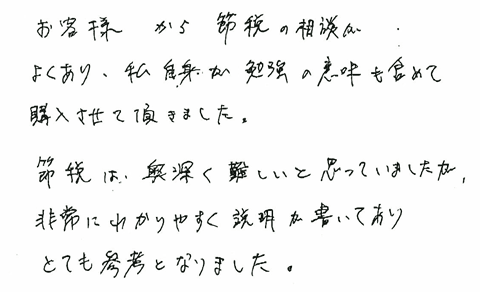 お客様から節税の相談が
よくあり、私自身が勉強の意味も含めて
購入させて頂きました。
節税は、奥深く難しいと思っていましたが、
非常にわかりやすく説明が書いてあり
とても参考となりました。